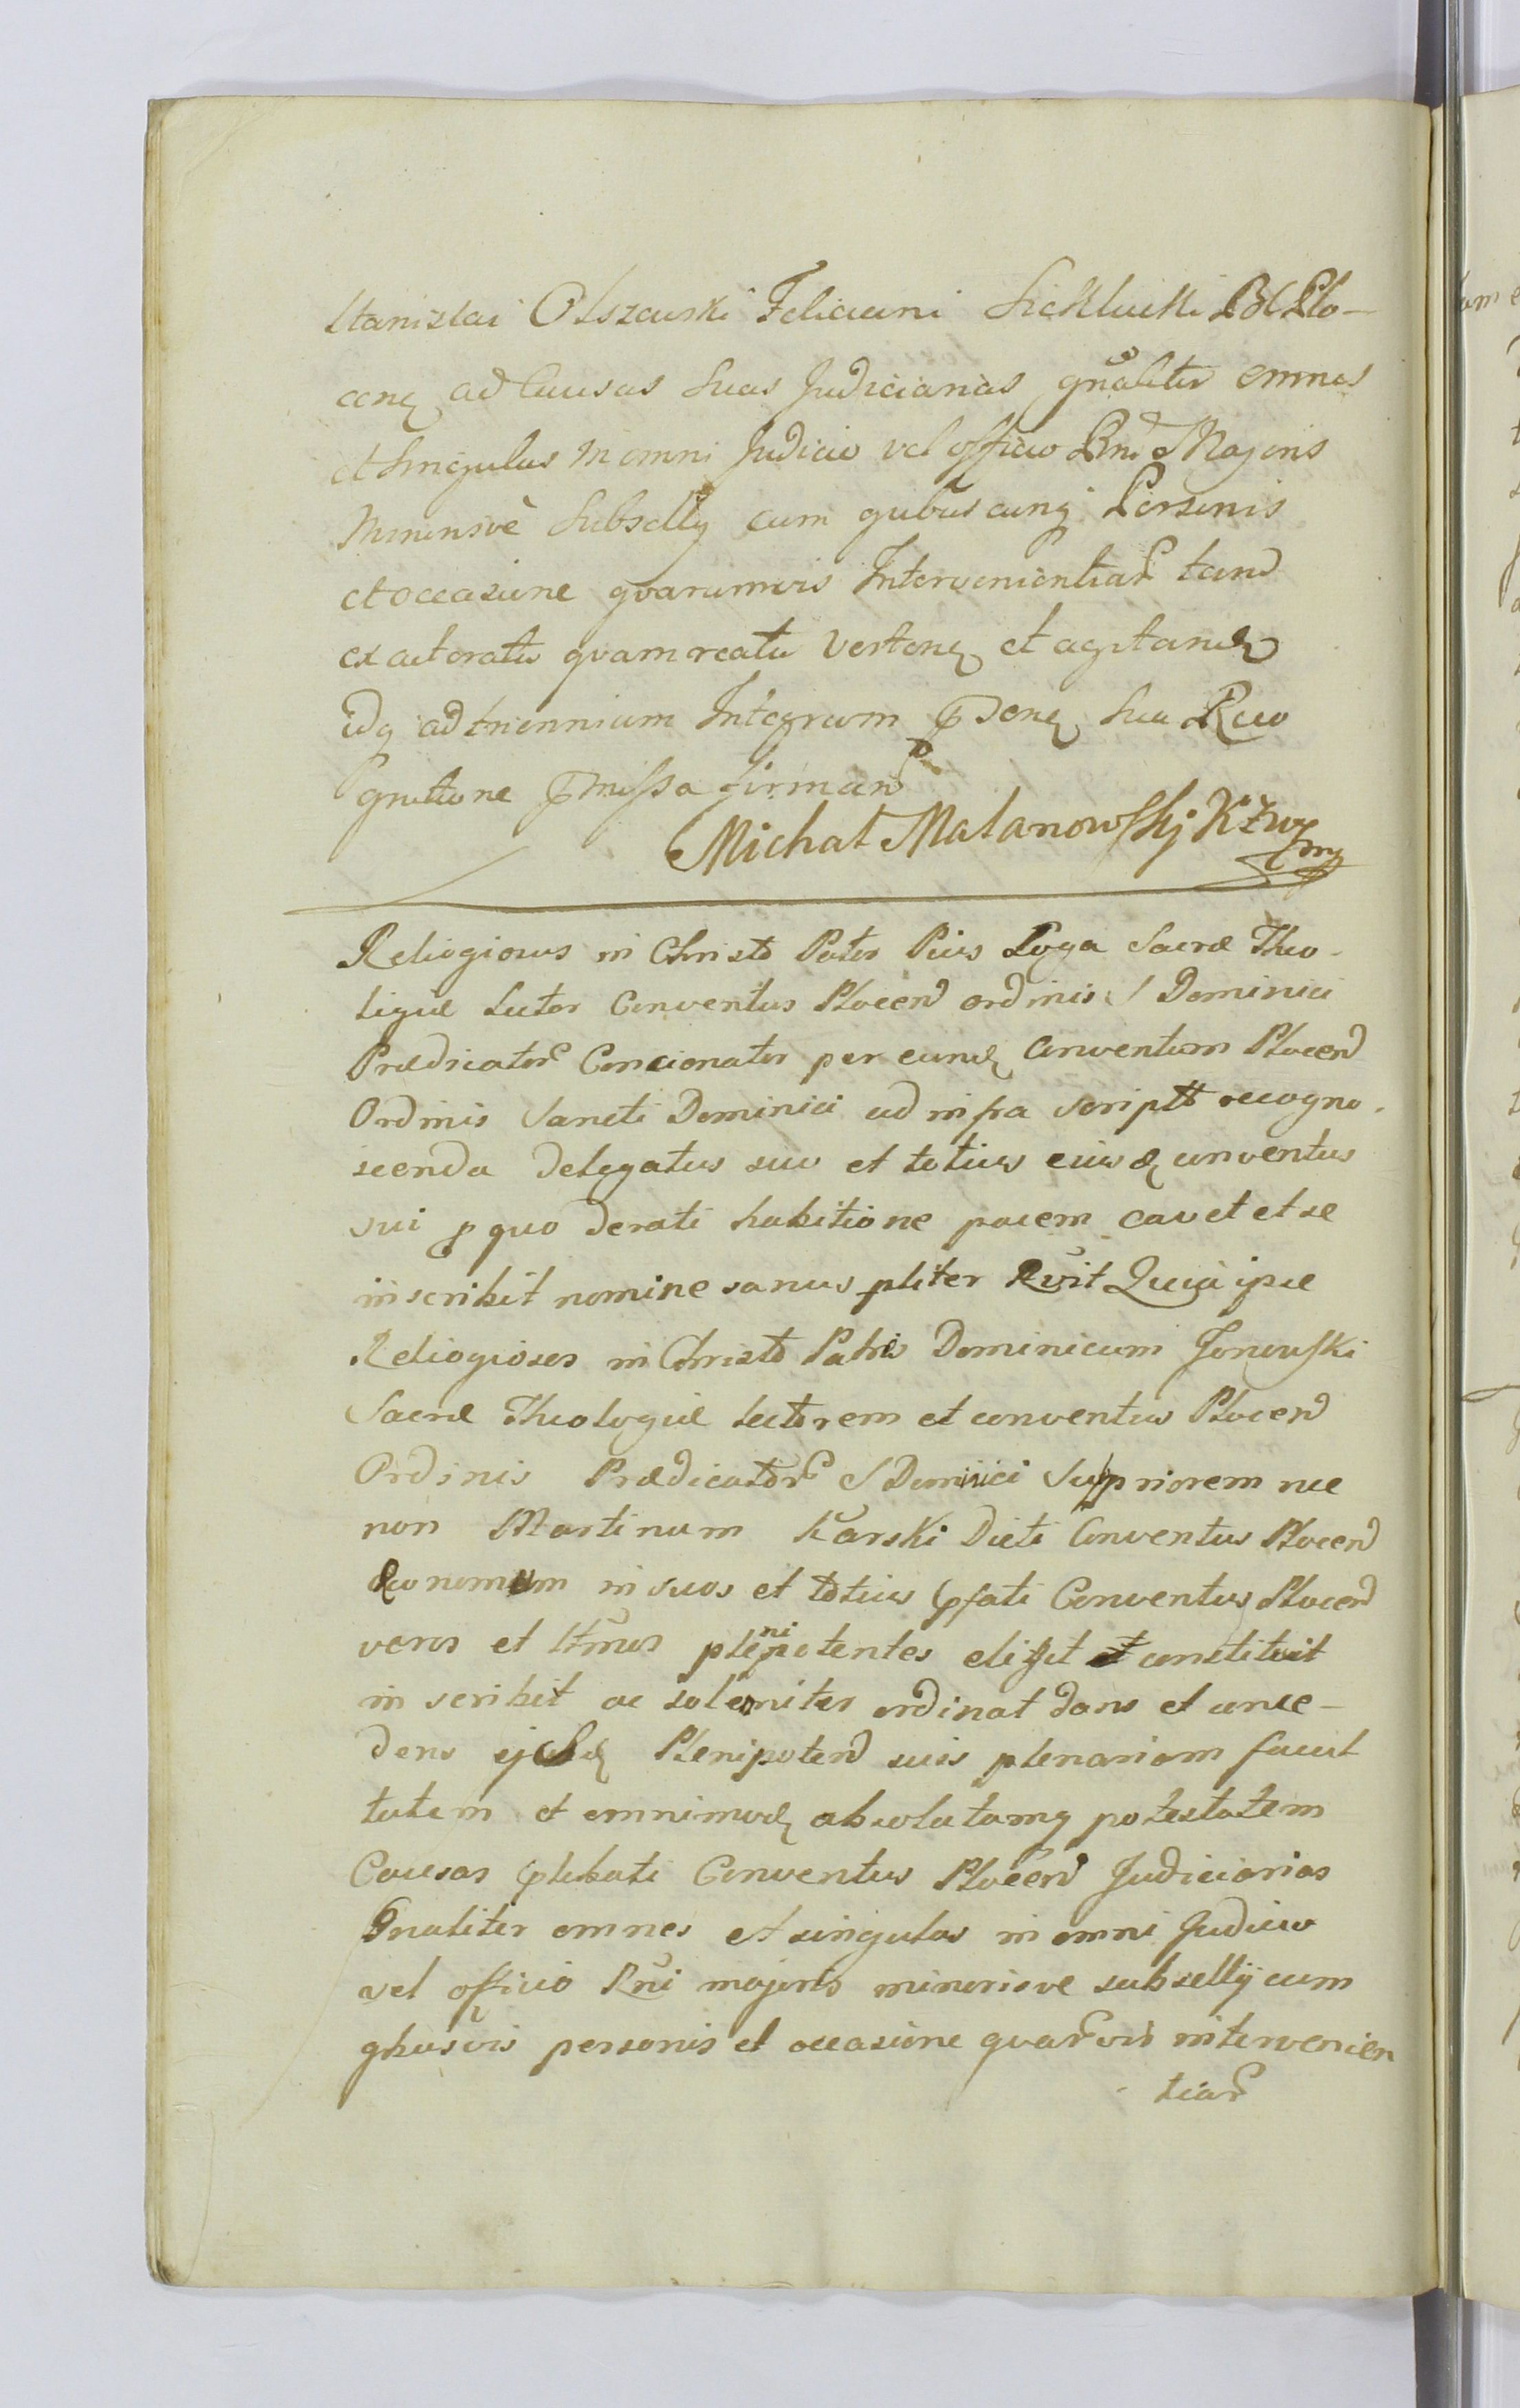 Stanislai Olszewski Feliciani Sieklucki Plo-
cen ad Causas Suas Judiciarias gnaliter omnes
et Singulas in omni Judicio vel officio Rni Majoris
Minorisvè Subselly cum quibuscunq Personis
et occasione qvarumvis Intervenientiar tand
ex actoratu qvam reatu verten et agitand
idq ad triennium Integrum Sua Reco
gnitione pmissa firman
Michał Małanowskj KZW mp
Religiosus in Christo Pater Pius Loga Sacræ Theo-
ligiæ Lector Conventus Plocen ordinis S Dominici
Prædicator Concionator per eund Conventum Plocen
Ordinis Sancti Dominici ad infra scripta recogno-
scenda delegatus suo et totius eiusd conventus
sui p quo de rati habitione pacem cavet et se
inscribit nomine sanus pliter Rvit Quia ipse
Religiosos in Christo Patres Dominicum Jonowski
Sacræ Theologiæ Lectorem et conventus Plocen
Ordinis Prædicator S Dominici Suppriorem nec
non Martinum Karski Dicti Conventus Plocen
Œconomum in suos et totius pfati Conventus Plocen
veros et lttmos plenipotentes eligit et constituit
inscribit ac solemniter ordinat dans et conce-
dens ejsd Plenipoten suis plenariam facul
tatem et omnimod absolutamq potestatem
Causas plibati Conventus Plocen Judiciarias
Gnaliter omnes et singulas in omni Judicio
vel officio Rni majoris minorisve subsellij cum
qbusvis personis et occasione qvarvis intervenien
tiar